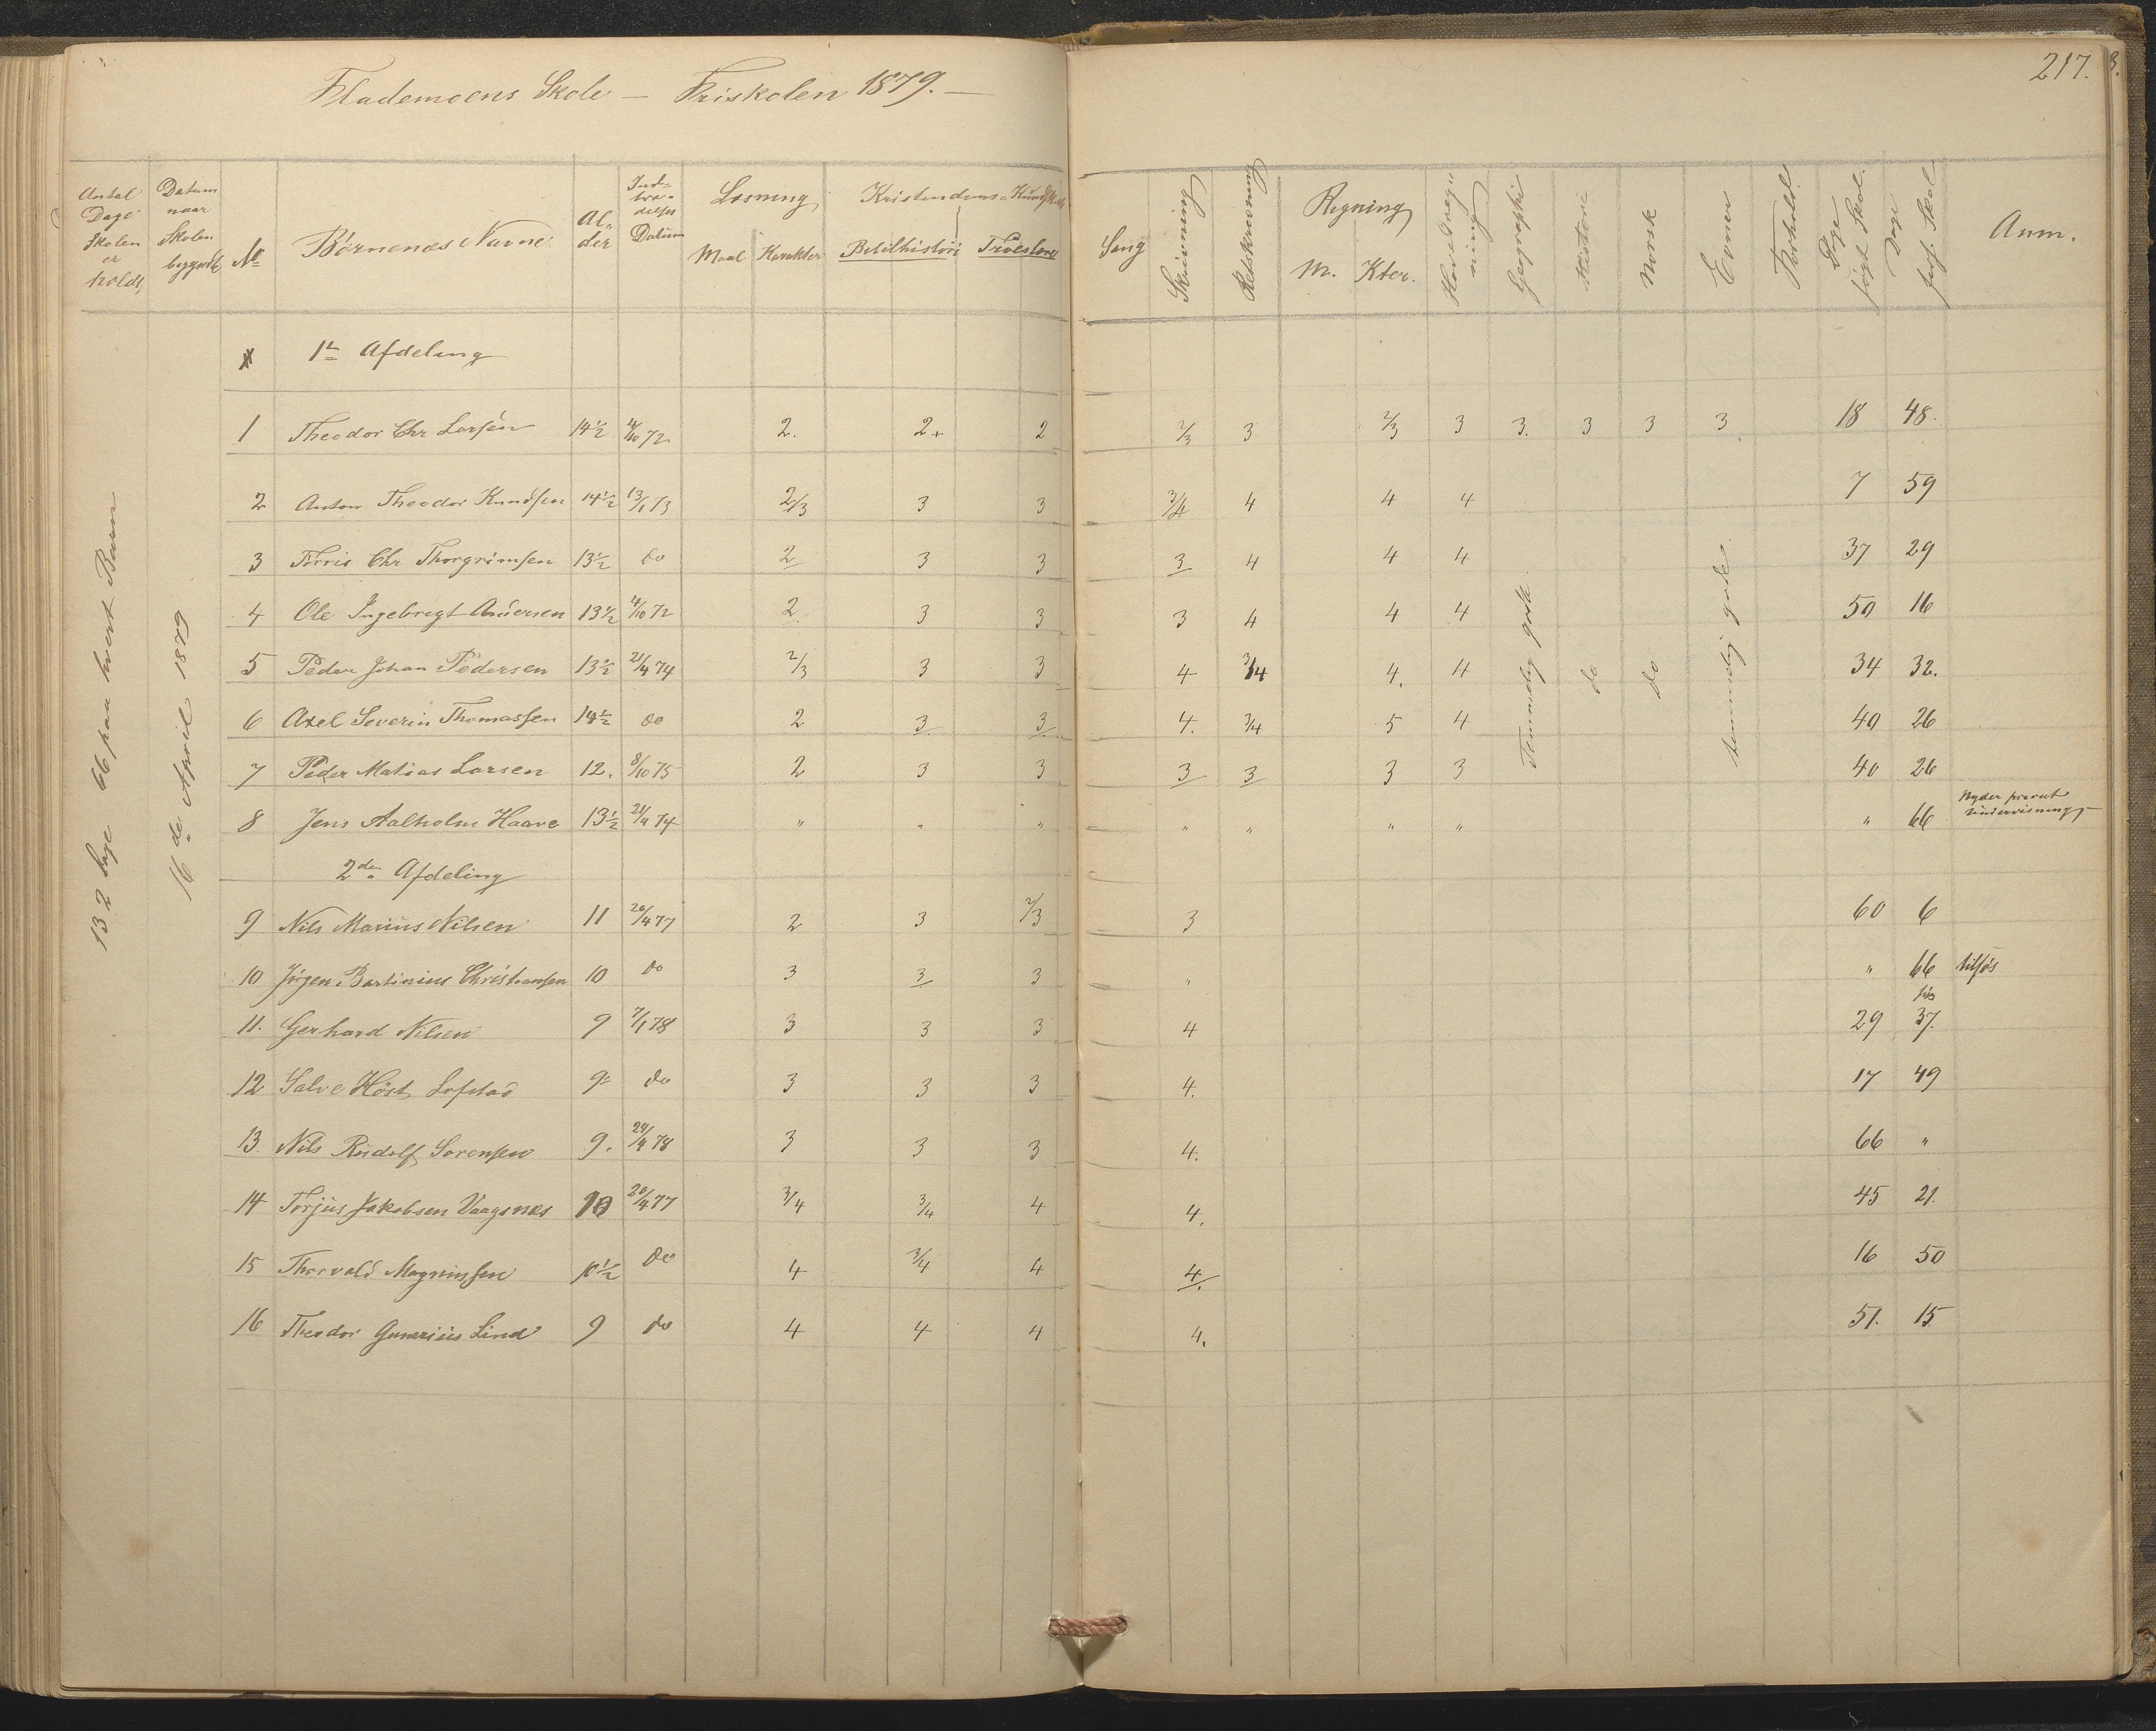 Flademoens Skole — Friskolen 1879. —
217.
Antal Dage Skolen er holdt, | Datum naar Skolen begyndte | No | Børnenes Navne | Al-der | Ind-træ-delses Datum | Læsning Maal Karakter | Kristendoms-Kundskab Bibelhistori Troeslære | Sang | Skrivning | Retskrivning | Regning M. Kter. | Hovedreg-ning | Geographi | Historie | Norsk | Evner | Forhold | Dage søgt Skol. | Dage fors. Skol | Anm.
132 dage 66 paa hvert Barn
16de April 1879
1ste Afdeling
1 Theodor Chr Larsen 14½ 4/10 72 2. 2+ 2 2/3 3 2/3 3 3. 3 3 3 18 48.
2 Anton Theodor Knudsen 14½ 13/1 73 2/3 3 3 3/4 4 4 4 7 59
3 Tørris Chr Thorgrimsen 13½ do 2 3 3 3 4 4 4 37 29
4 Ole Ingebregt Andersen 13½ 4/10 72 2 3 3 3 4 4 4 50 16
5 Peder Johan Pedersen 13½ 21/4 74 2/3 3 3 4 3/4 4. 4 34 32.
6 Axel Severin Thomassen 14½ do 2 3 3 4. 3/4 5 4 40 26
7 Peder Matias Larsen 12. 8/10 75 2 3 3 3 3 3 3 40 26
Temmelig gode. do do temmelig gode.
8 Jens Aalholm Haave 13½ 21/4 74 " " " " " " " " 66 Nyder privat Undervisning,
2den Afdeling
9 Nils Marius Nilsen 11 20/4 77 2 3 2/3 3 60 6
10 Jørgen Bartinius Christiansen 10 do 3 3 3 " " 66 tilsøs
11. Gerhard Nilsen 9 7/1 78 3 3 3 4 29 37.
12 Salve Høst Lofstad 9 do 3 3 3 4. 17 49
13 Nils Rudolf Sørensen 9. 24/4 78 3 3 3 4. 66 "
14 Torjus Jakobsen Vaagsnes 10 20/4 77 3/4 3/4 4 4. 45 21.
15 Thorvald Magnussen 10½ do 4 3/4 4 4. 16 50
16 Theodor Gunerius Lind 9 do 4 4 4 4. 51. 15